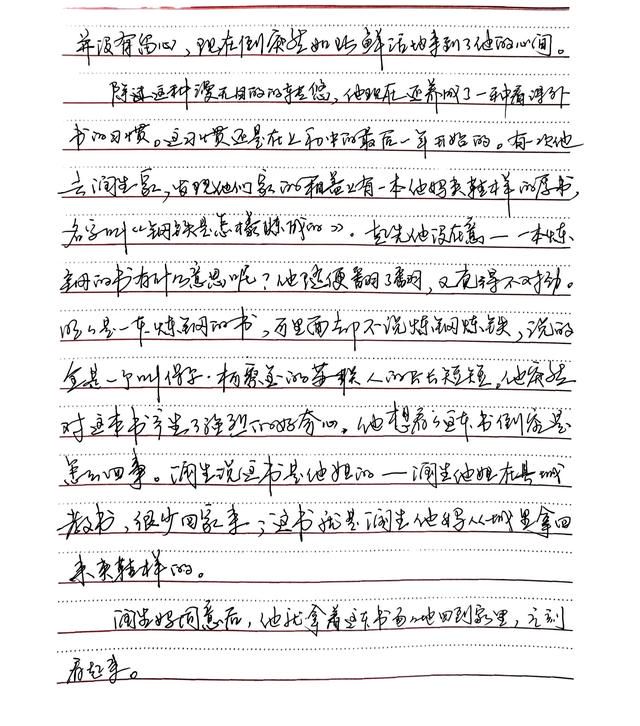 并没有留心，现在倒突然如此鲜活地来到了他的心间。
除过这种漫无目的的转悠，他现在还养成了一种看课外
书的习惯。这习惯还是在上初中的最后一年开始的。有一次他
去润生家，发现他们家的箱盖上有一本他妈夹鞋样的厚书，
名字叫《钢铁是怎样炼成的》。起先他没在意——一本炼
钢的书有什么意思呢？他随便翻了翻，又觉得不对劲。
明明是一本炼钢的书，可里面却不说炼钢炼铁，说的
全是一个叫保尔·柯察金的苏联人的长长短短。他突然
对这本书产生了强烈的好奇心。他想看看这本书倒究是
怎么回事。润生说这书是他姐的——润生他姐在县城
教书，很少回家来；这书就是润生他妈从城里拿回
来夹鞋样的。
润生妈同意后，他就拿着这本书匆匆地回到家里，立刻
看起来。